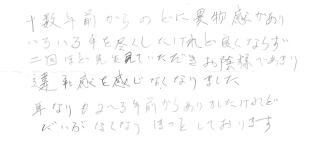 十数年前からのどに異物感があり
いろいろ手を尽くしたけれど良くならず
二回ほど先生に見ていただきお陰様であまり
違和感を感じなくなりました
耳なりも2〜3年前からありましたけれど
だいぶよくなりほっとしております